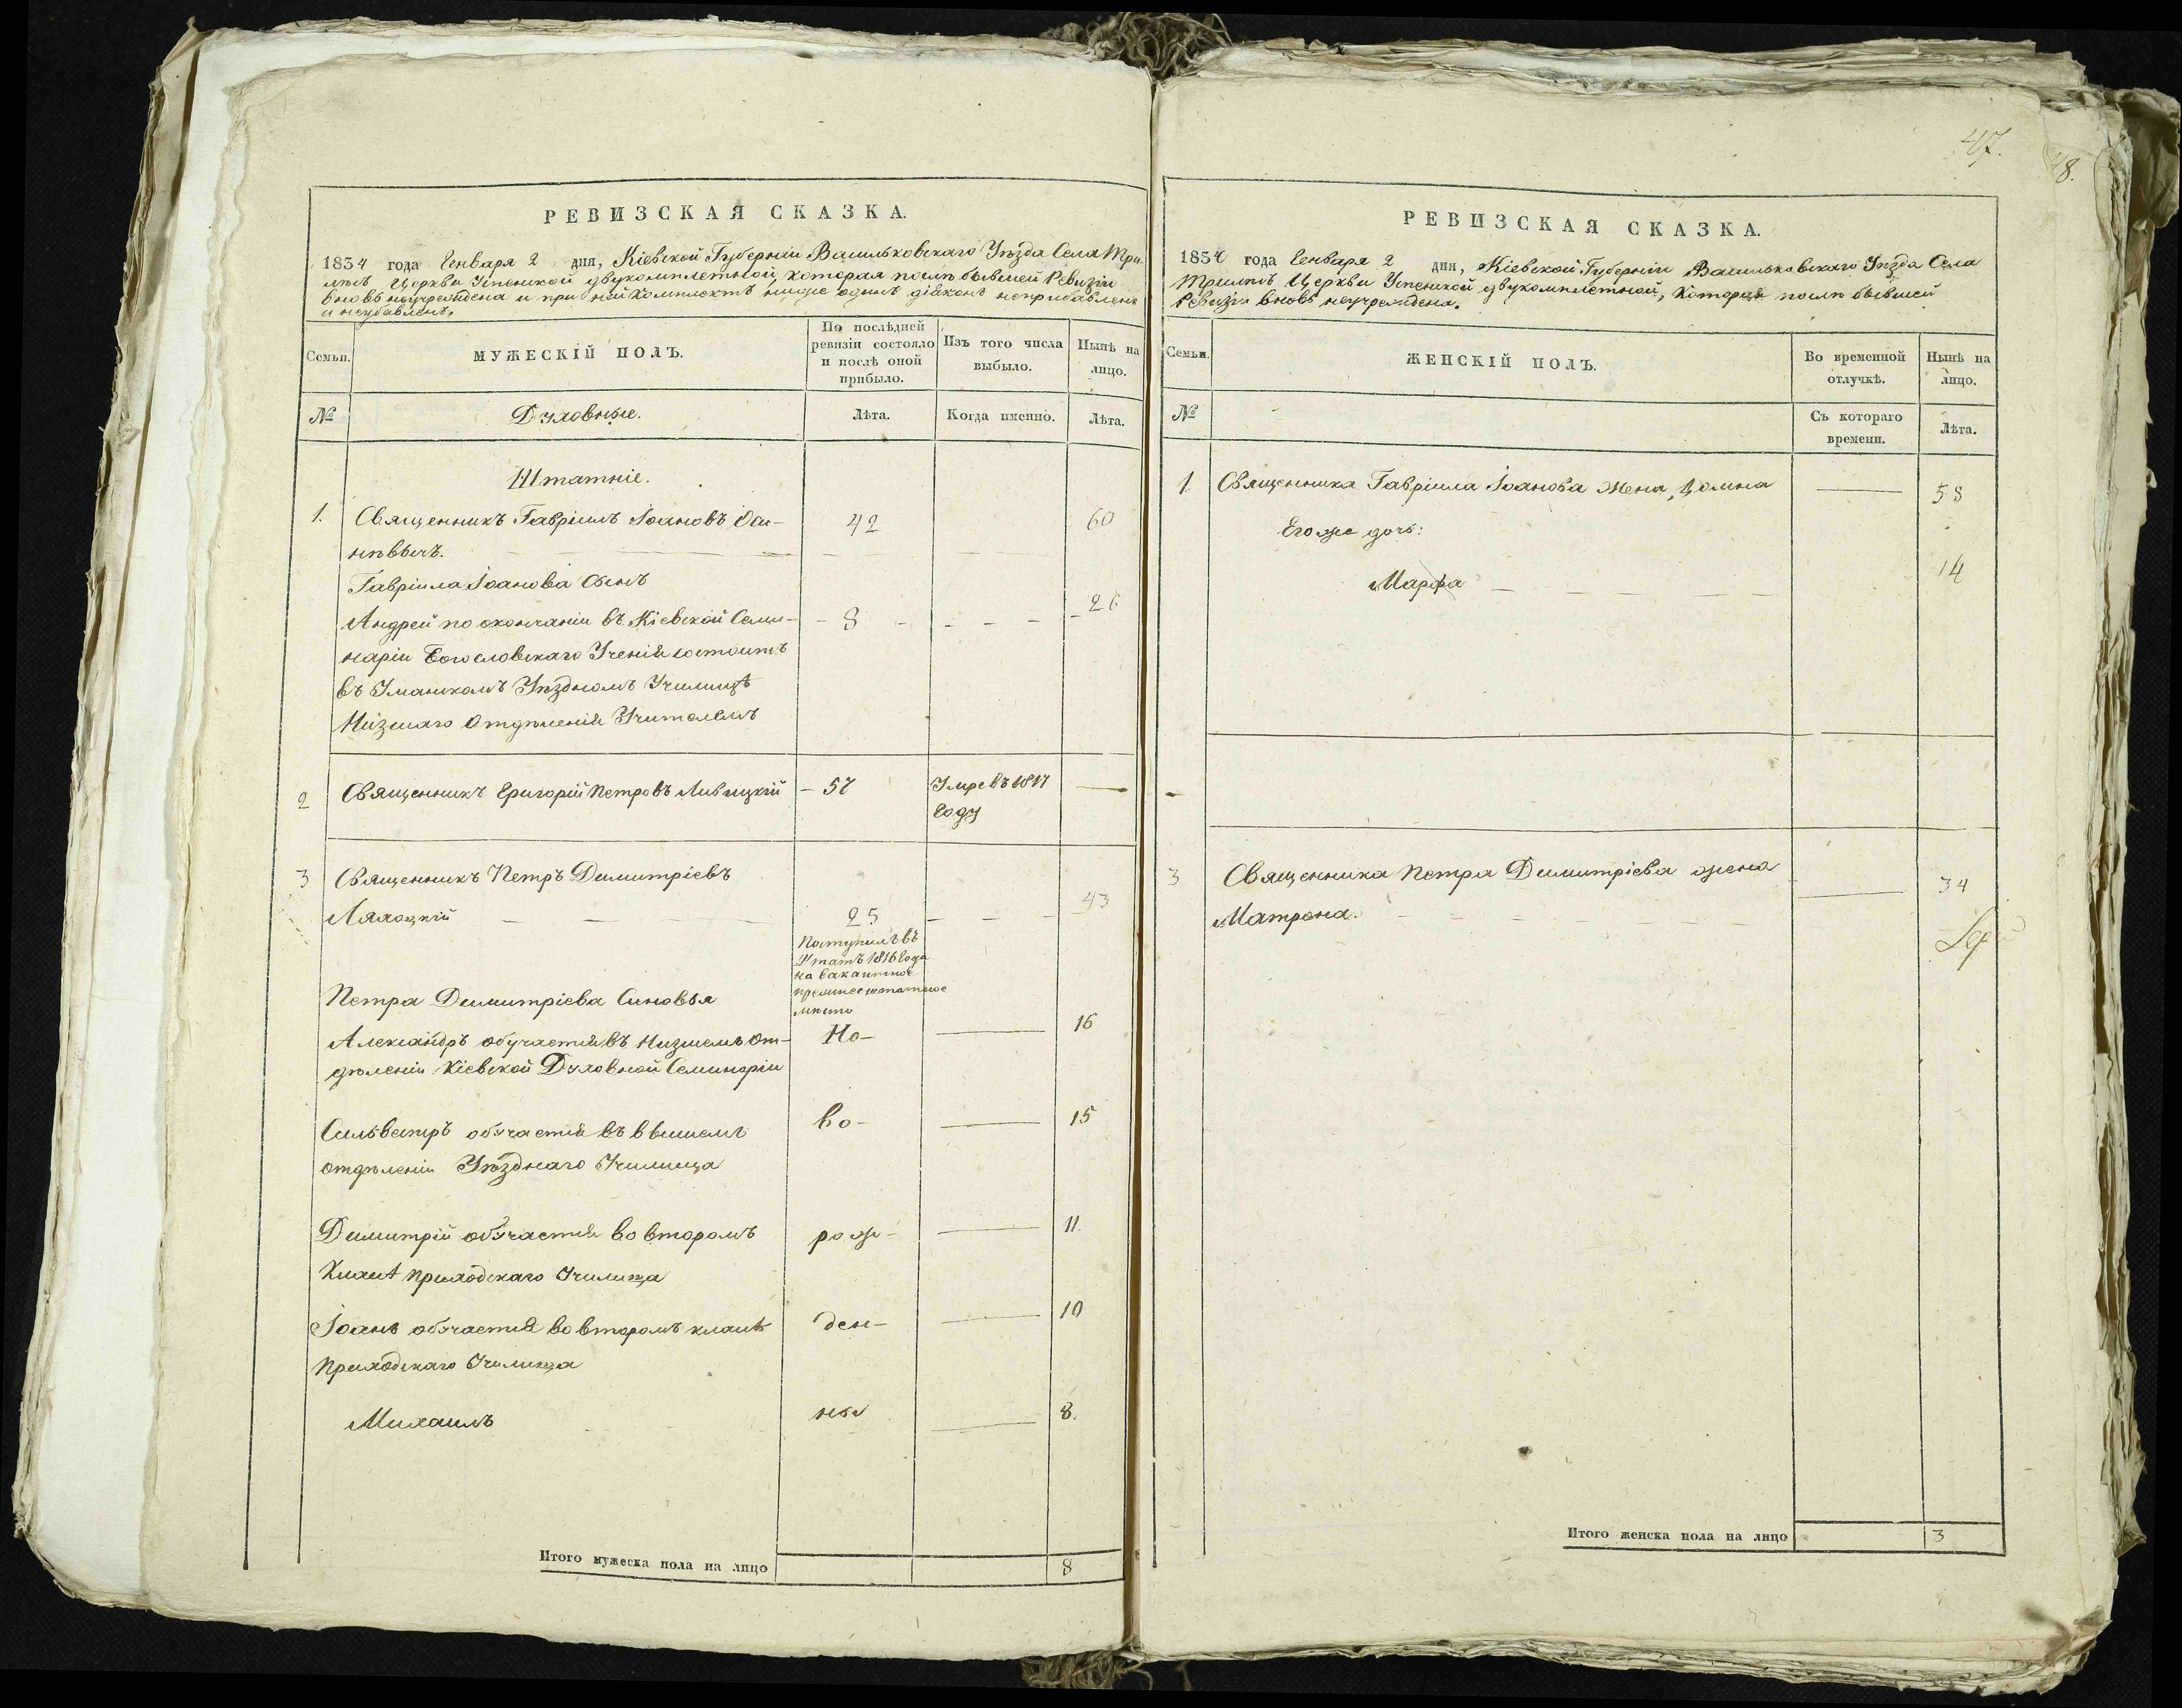 РЕВИЗСКАЯ СКАЗКА.
1834 года Генваря 2 дня, Кіевской Губерніи Васильковскаго Уѣзда Села Три-
лѣсъ Церкви Успенской двукомплетной, которая послѣ бывшей Ревизіи
вновь неучреждена и при ней комплектъ ниже одинъ діаконъ неприбавленъ
и неубавленъ.
Семьи.
МУЖЕСКІЙ ПОЛЪ.
По послѣдней ревизіи состояло и послѣ оной прибыло.
Изъ того числа выбыло.
Нынѣ на лицо.
№
Духовные.
Лѣта.
Когда именно.
Лѣта.
Штатніе.
1. Священникъ Гавріилъ Іоановъ 42 60
Гавріила Іоанова Сынъ
Андрей по окончаніи въ Кіевской Семи- 8 26
наріи Богословскаго Ученія состоитъ
въ Уманскомъ Уѣздномъ Училищѣ
Низшаго Отдѣленія Учителемъ
2 Священникъ Григорій Петровъ Ливицкій 57 Умре въ 1817
Году
3 Священникъ Петръ Димитріевъ
Ляхоцкій 25 43
Поступилъ въ
Штатъ 1816 Года
на вакантное
мѣсто
Петра Димитріева Синовья
Александръ обучается въ Низшемъ От- Но- 16
дѣленіи Кіевской Духовной Семинаріи
Сильвестръ обучается въ высшемъ во- 15
отдѣленіи Уѣзднаго Училища
Димитрій обучается во второмъ рож- 11.
Класѣ Приходскаго Училища
Іоанъ обучается во второмъ класѣ ден- 10
Приходскаго Училища
Михаилъ ные 8.
Итого мужеска пола на лицо 8
47.
48.
РЕВИЗСКАЯ СКАЗКА.
1834 года Генваря 2 дня, Кіевской Губерніи Васильковскаго Уѣзда Села
Трилѣсъ Церкви Успенской двукомплетной, которая послѣ бывшей
Ревизіи вновь неучреждена.
Семьи.
ЖЕНСКІЙ ПОЛЪ.
Во временной отлучкѣ.
Нынѣ на лицо.
№
Съ котораго времени.
Лѣта.
1. Священника Гавріила Іоанова Жена, 58
Егоже дочь:
Марфа 14
3 Священника Петра Димитріева жена 34
Матрона.
Итого женска пола на лицо 3